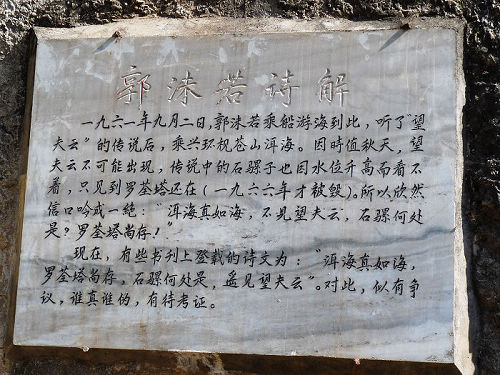 郭沫若诗解
一九六一年九月二日,郭沫若乘船游海到此，听了“望
夫云”的传说后，乘兴环视苍山洱海。因時值秋天，望
夫云不可能出现，传说中的石骡子也因水位升高而看不
着，只见到罗荃塔还在（一九六六年才被毁）。所以欣然
信口吟成一绝：“洱海真如海，不见望夫云，石骡何处
是？罗荃塔尚存！”
现在，有些书刊上登载的诗文为：“洱海真如海，
罗荃塔尚存，石骡何处是，遥见望夫云”。对此，似有争
议，谁真谁伪，有待考证。